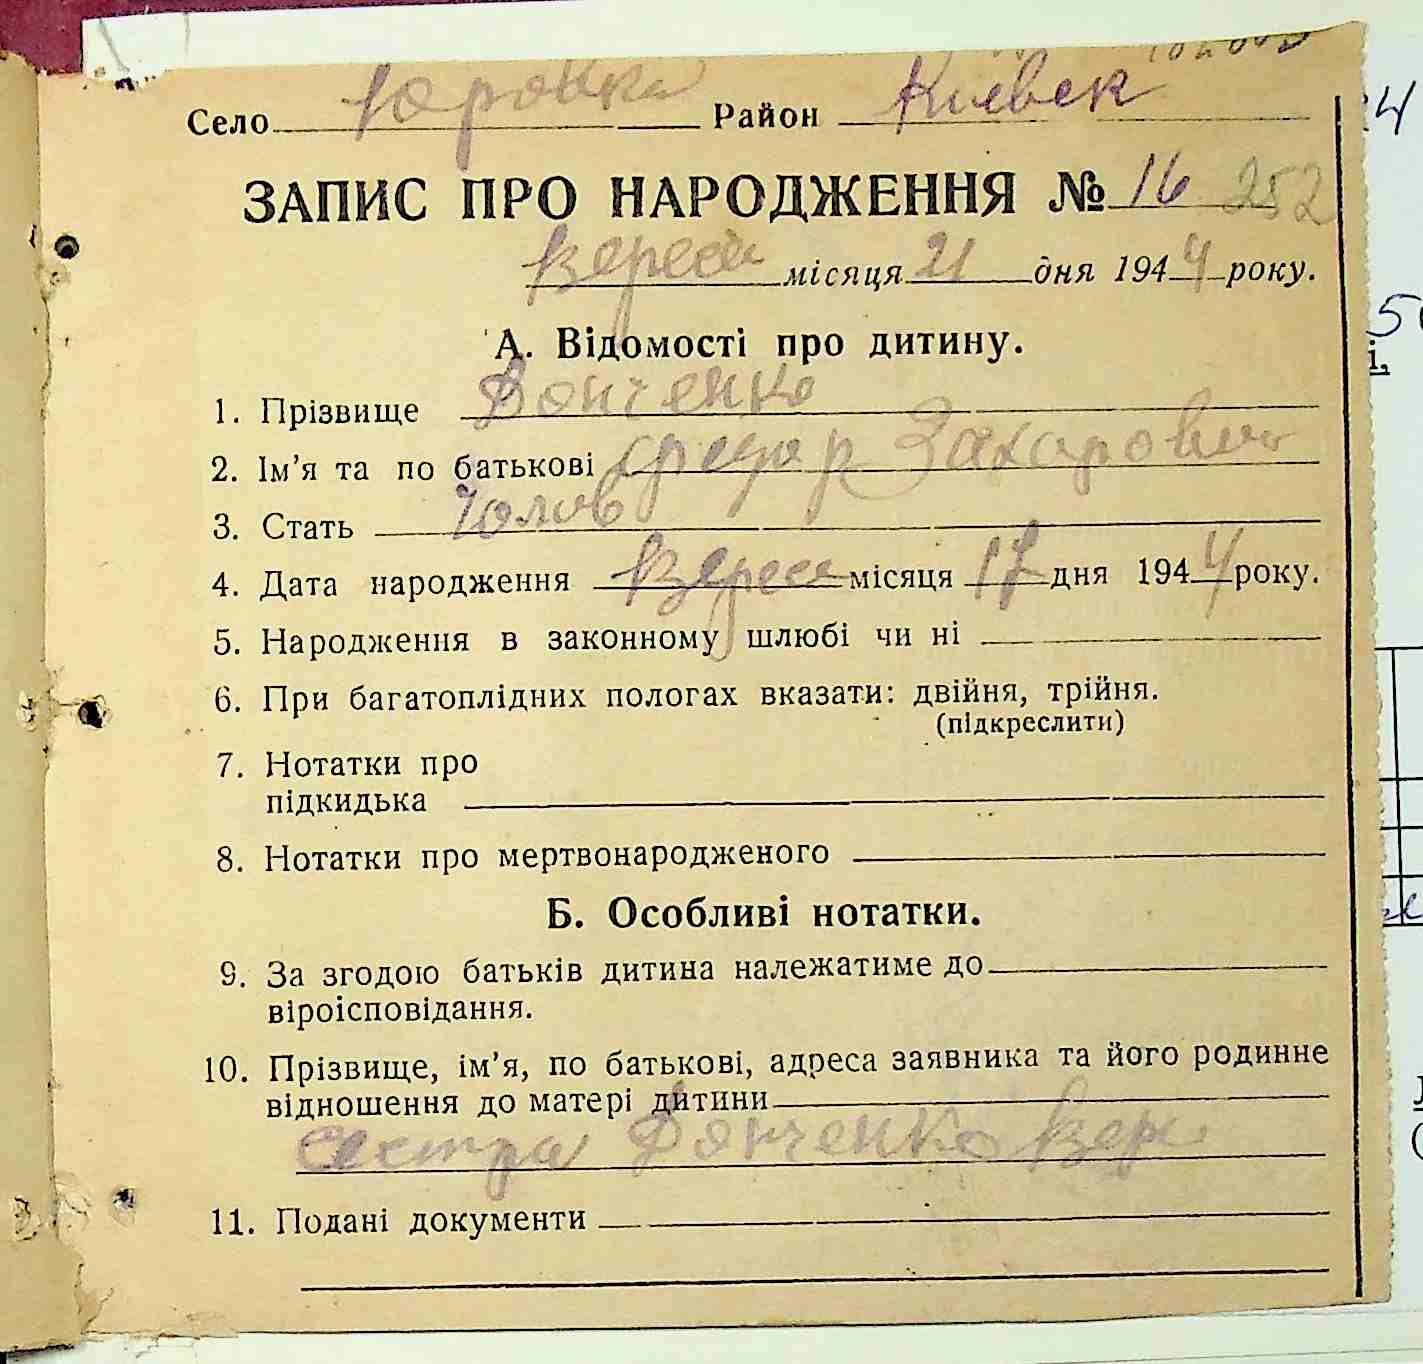 Село Юровка Район Киевск
ЗАПИС ПРО НАРОДЖЕННЯ № 16 252
Вересн місяця 21 дня 1944 року.
А. Відомості про дитину.
1. Прізвище Донченко
2. Ім'я та по батькові Федор Захарович
3. Стать Чолов
4. Дата народження Вересн місяця 17 дня 1944 року.
5. Народження в законному шлюбі чи ні
6. При багатоплідних пологах вказати: двійня, трійня.
(підкреслити)
7. Нотатки про
підкидька
8. Нотатки про мертвонародженого
Б. Особливі нотатки.
9. За згодою батьків дитина належатиме до
віроісповідання.
10. Прізвище, ім'я, по батькові, адреса заявника та його родинне
відношення до матері дитини
сестра Донченко Вера
11. Подані документи